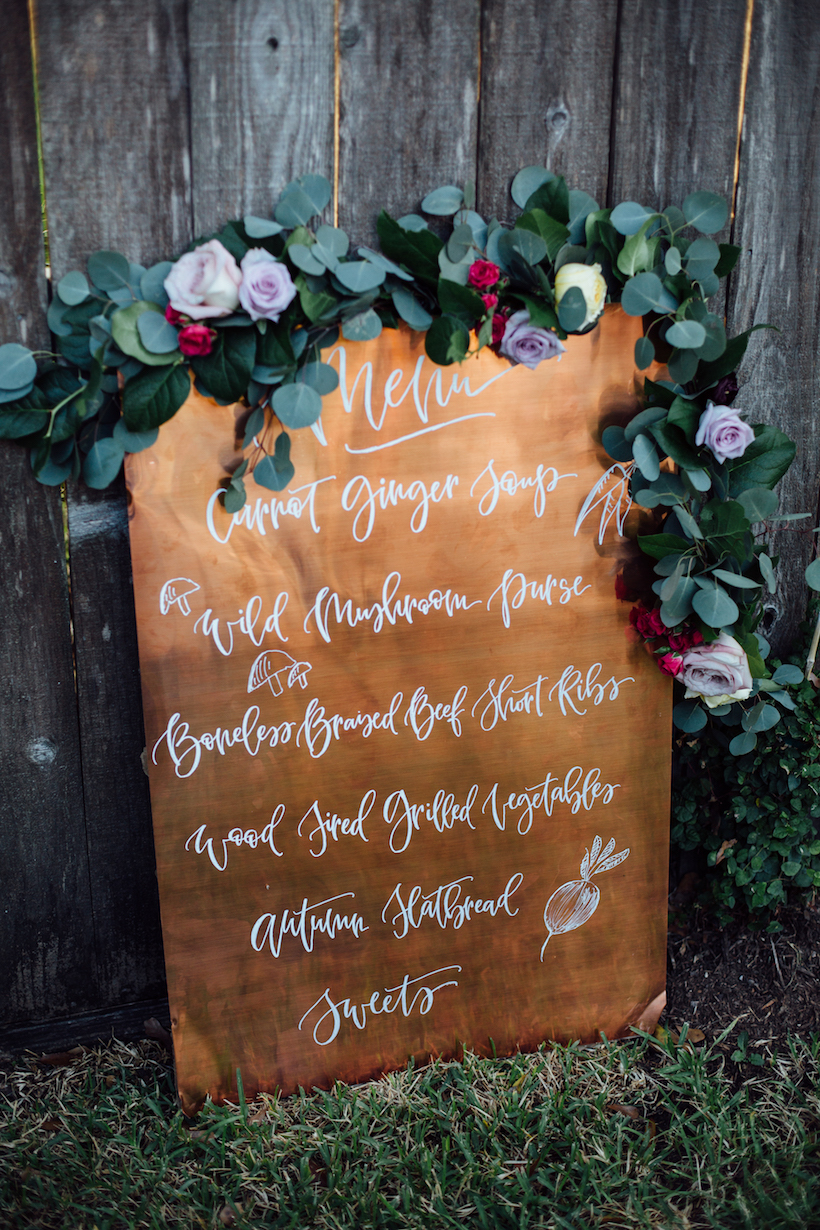 Menu
Carrot Ginger Soup
Wild Mushroom Purse
Boneless Braised Beef Short Ribs
Wood Fired Grilled Vegetables
Autumn Flatbread
Sweets